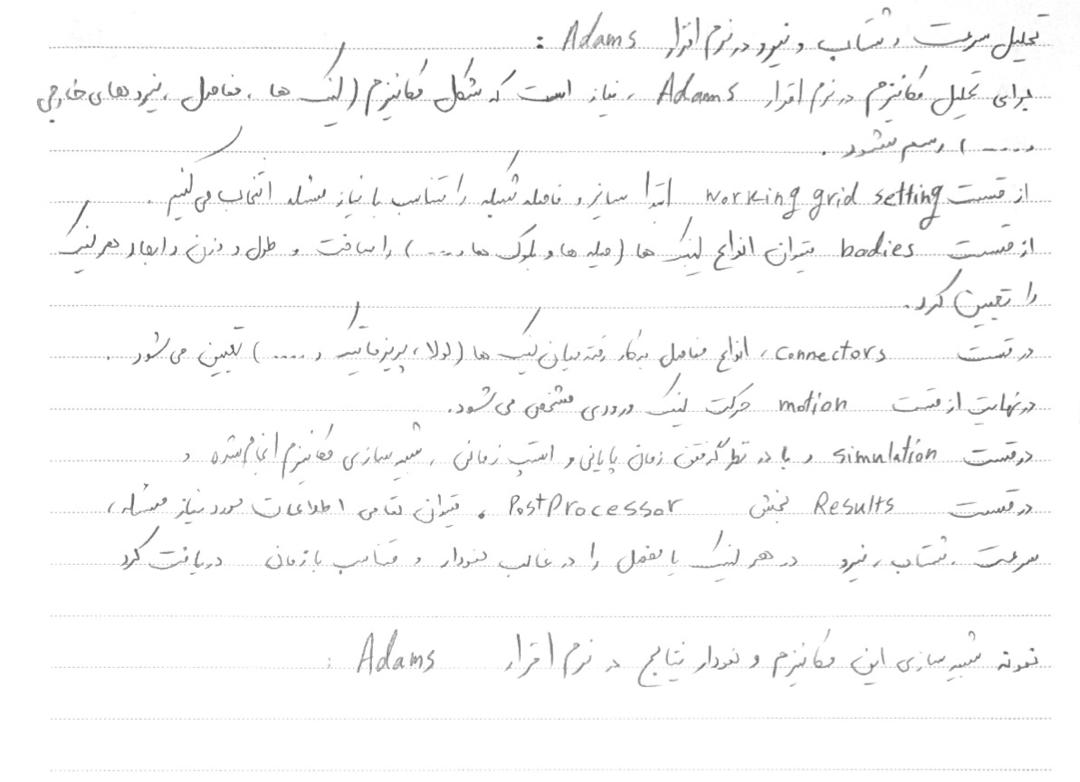 تحلیل سرعت و شتاب و نیرو در نرم افزار Adams :
برای تحلیل مکانیزم در نرم افزار Adams ، نیاز است که شکل مکانیزم (لینک ها ، مفاصل ، نیروهای خارجی
و ....) رسم شود .
از قسمت working grid setting ابتدا سایز و فاصله شبکه را متناسب با نیاز مسئله انتخاب می کنیم .
از قسمت bodies میتوان انواع لینک ها (میله ها و بلوک ها و ....) را ساخت و طول و وزن و ابعاد هر لینک
را تعیین کرد .
در قسمت connectors ، انواع مفاصل به کار رفته میان لینک ها (لولا ، پریزماتیک و ....) تعیین می شود .
در نهایت از قسمت motion حرکت لینک ورودی مشخص می شود .
در قسمت simulation و با در نظر گرفتن زمان پایانی و استپ زمانی ، شبیه سازی مکانیزم انجام شده و
در قسمت Results بخش PostProcessor ، میتوان تمامی اطلاعات مورد نیاز مسئله ،
سرعت ، شتاب ، نیرو در هر لینک یا مفصل را در غالب نمودار و متناسب با زمان دریافت کرد
نمونه شبیه سازی این مکانیزم و نمودار نتایج در نرم افزار Adams :